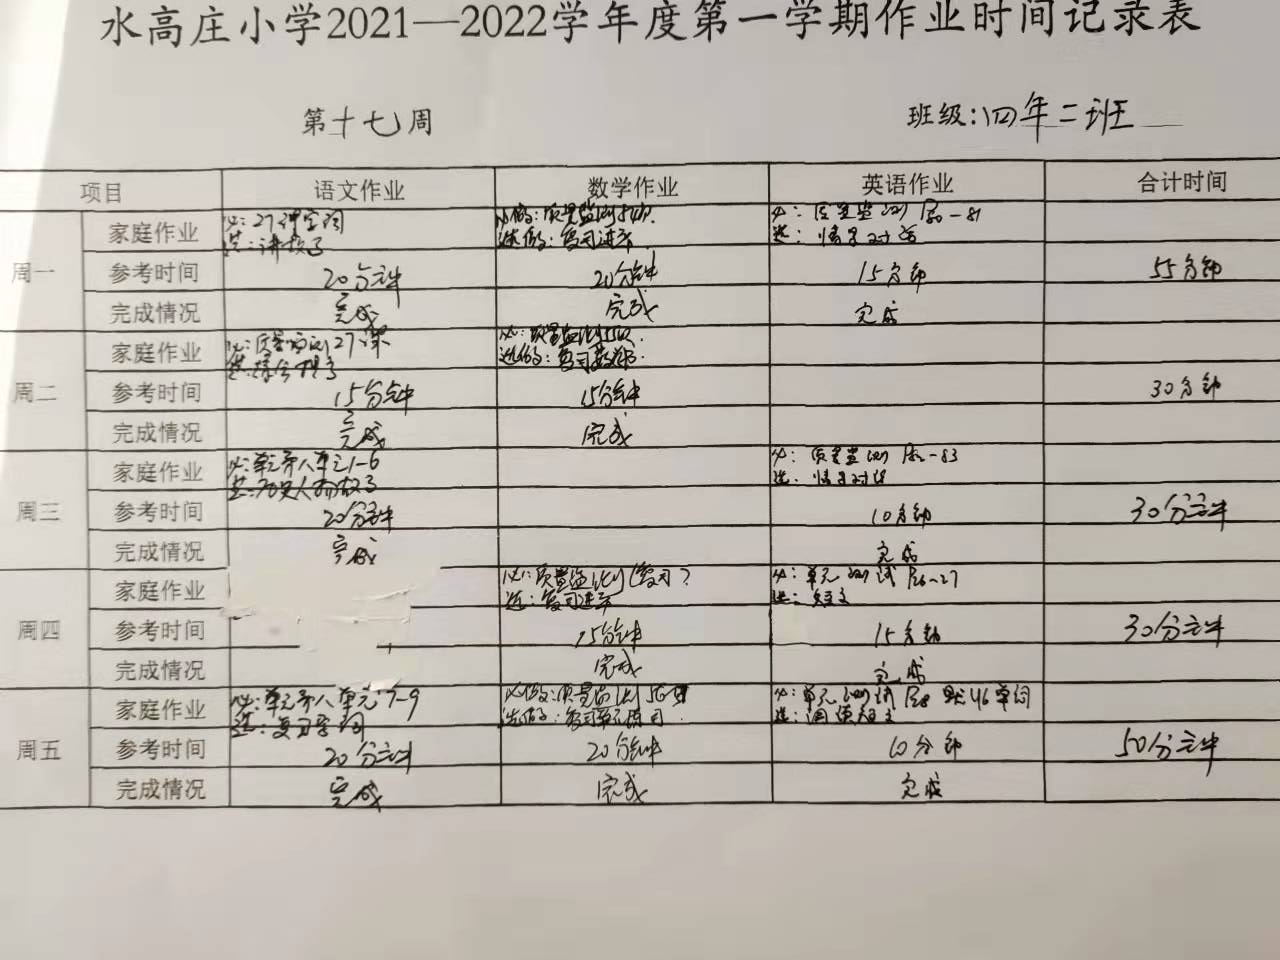 水高庄小学2021—2022学年度第一学期作业时间记录表
第十七周 班级:四年二班
项目 语文作业 数学作业 英语作业 合计时间
周一
家庭作业
必:27课
必做:质量监测
必:质量监测 P80-81
选:讲故事
选做:复习
选:情景对话
参考时间 20分钟 20分钟 15分钟 55分钟
完成情况 完成 完成 完成
周二
家庭作业
必:质量监测27课
必:质量监测
选做:复习
参考时间 15分钟 15分钟 30分钟
完成情况 完成 完成
周三
家庭作业
必:单元第八单元1-6
必:质量监测 P82-83
选:历史人物故事
选:情景对话
参考时间 20分钟 10分钟 30分钟
完成情况 完成 完成
周四
家庭作业
必:质量监测(复习)
必:单元测试 P26-27
选:复习
选:短文
参考时间 15分钟 15分钟 30分钟
完成情况 完成 完成
周五
家庭作业
必:单元第八单元7-9
必做:质量监测
必:单元测试 P28 默U6单词
选:复习字词
选做:复习单元练习
选:阅读短文
参考时间 20分钟 20分钟 10分钟 50分钟
完成情况 完成 完成 完成